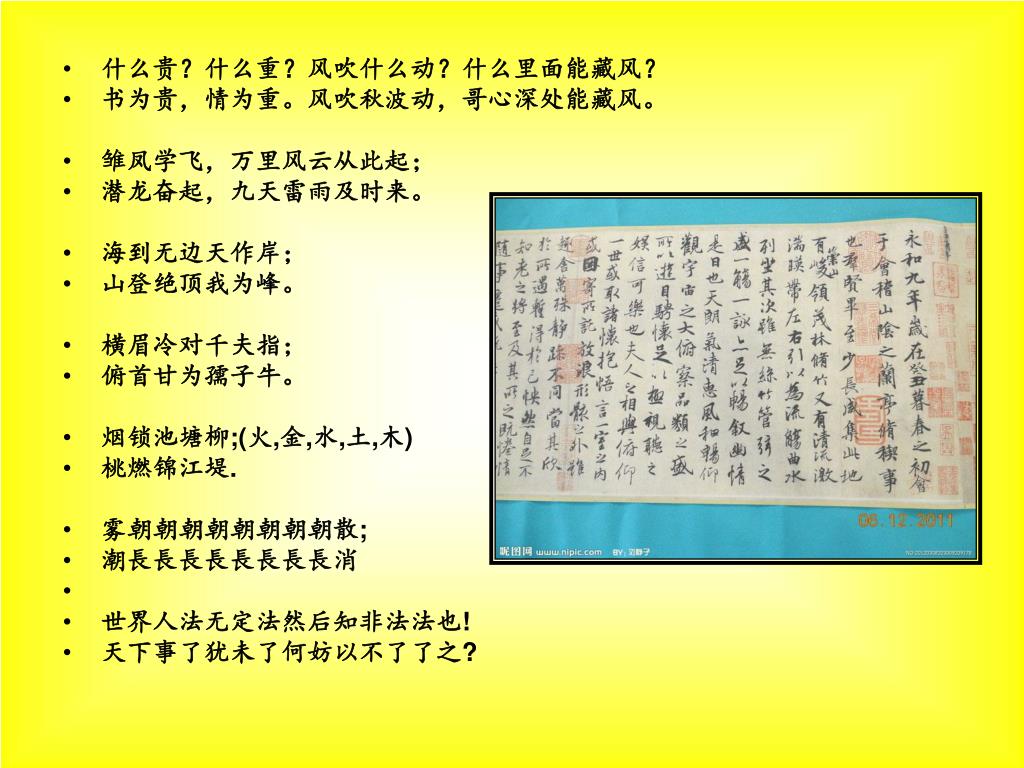 什么贵？什么重？风吹什么动？什么里面能藏风？
书为贵，情为重。风吹秋波动，哥心深处能藏风。
雏凤学飞，万里风云从此起；
潜龙奋起，九天雷雨及时来。
海到无边天作岸；
山登绝顶我为峰。
横眉冷对千夫指；
俯首甘为孺子牛。
烟锁池塘柳;(火,金,水,土,木)
桃燃锦江堤.
雾朝朝朝朝朝朝朝朝散;
潮長長長長長長長長消
世界人法无定法然后知非法法也!
天下事了犹未了何妨以不了了之?
永和九年歲在癸丑暮春之初會
于會稽山陰之蘭亭脩稧事
也群賢畢至少長咸集此地
有崇山峻領茂林脩竹又有清流激
湍暎帶左右引以為流觴曲水
列坐其次雖無絲竹管弦之
盛一觴一詠亦足以暢叙幽情
是日也天朗氣清惠風和暢仰
觀宇宙之大俯察品類之盛
所以遊目騁懷足以極視聽之
娛信可樂也夫人之相與俯仰
一世或取諸懷抱悟言一室之內
或因寄所託放浪形骸之外雖
趣舍萬殊靜躁不同當其欣
於所遇暫得於己怏然自足不
知老之將至及其所之既惓情
隨事遷感
06.12.2011
昵图网 www.nipic.com BY: